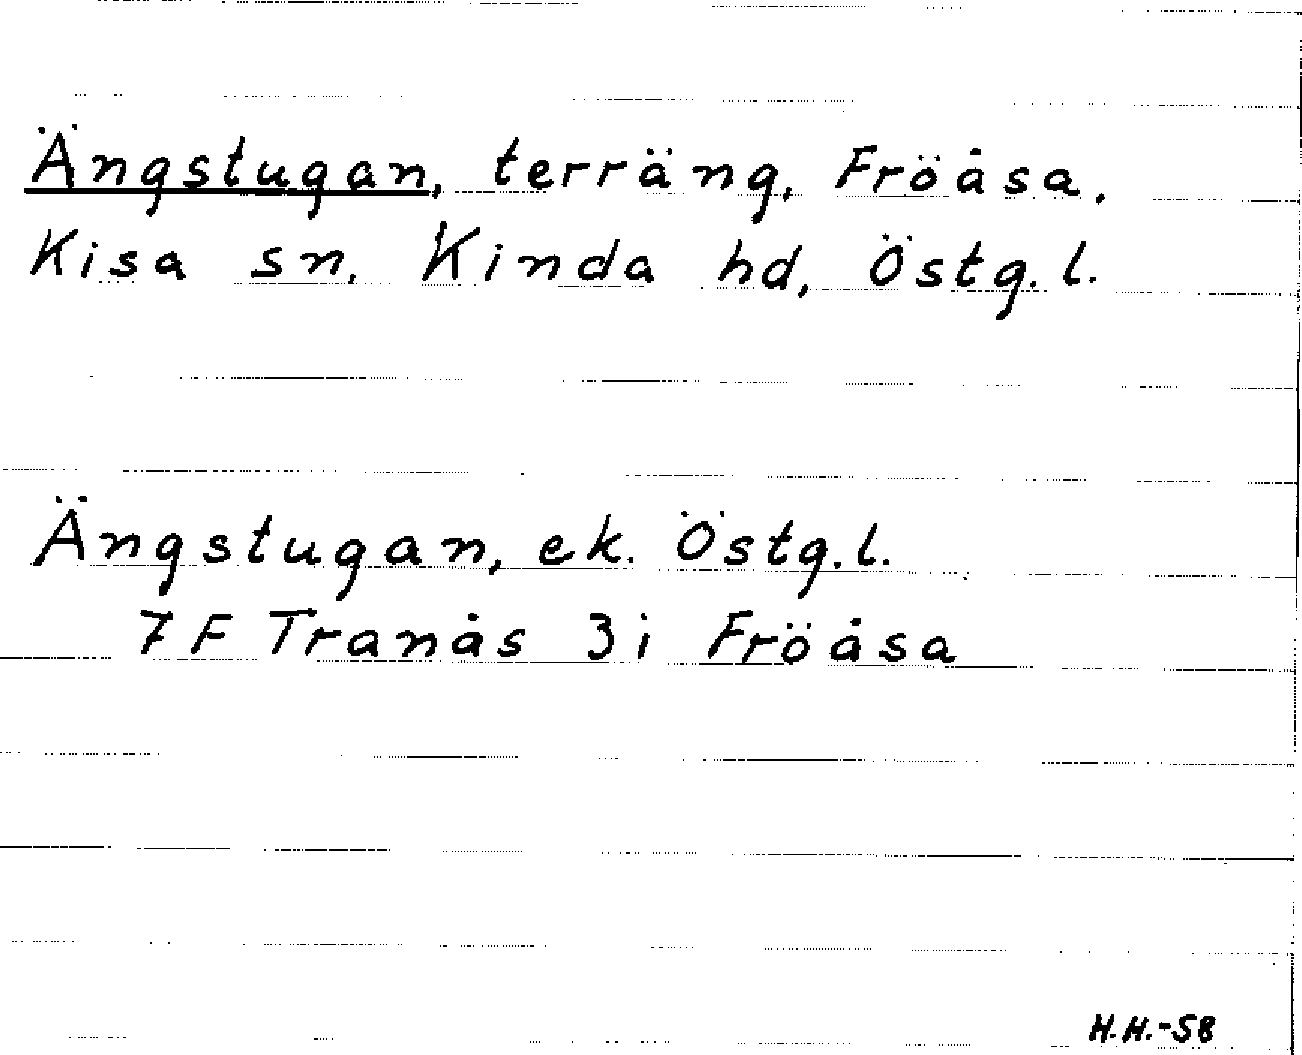 Ängstugan, terräng, Fröåsa.
Kisa sn. Kinda hd, Östg.l.
Ängstugan, ek. Östg.l.
7 F Tranås 3i Fröåsa
H.H.-58